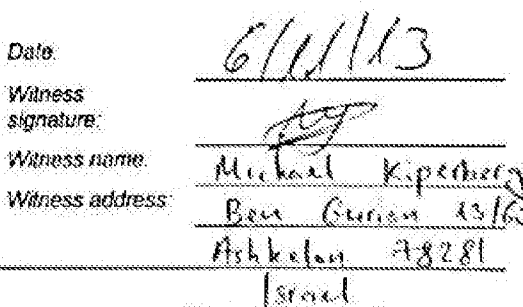 Date: 6/11/13
Witness
signature:
Witness name: Michael Kiperberg
Witness address: Ben Gurion 13/6
Ashkelon 78281
Israel